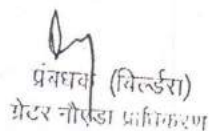 प्रबंधक (बिल्डर्स)
ग्रेटर नौएडा प्राधिकरण